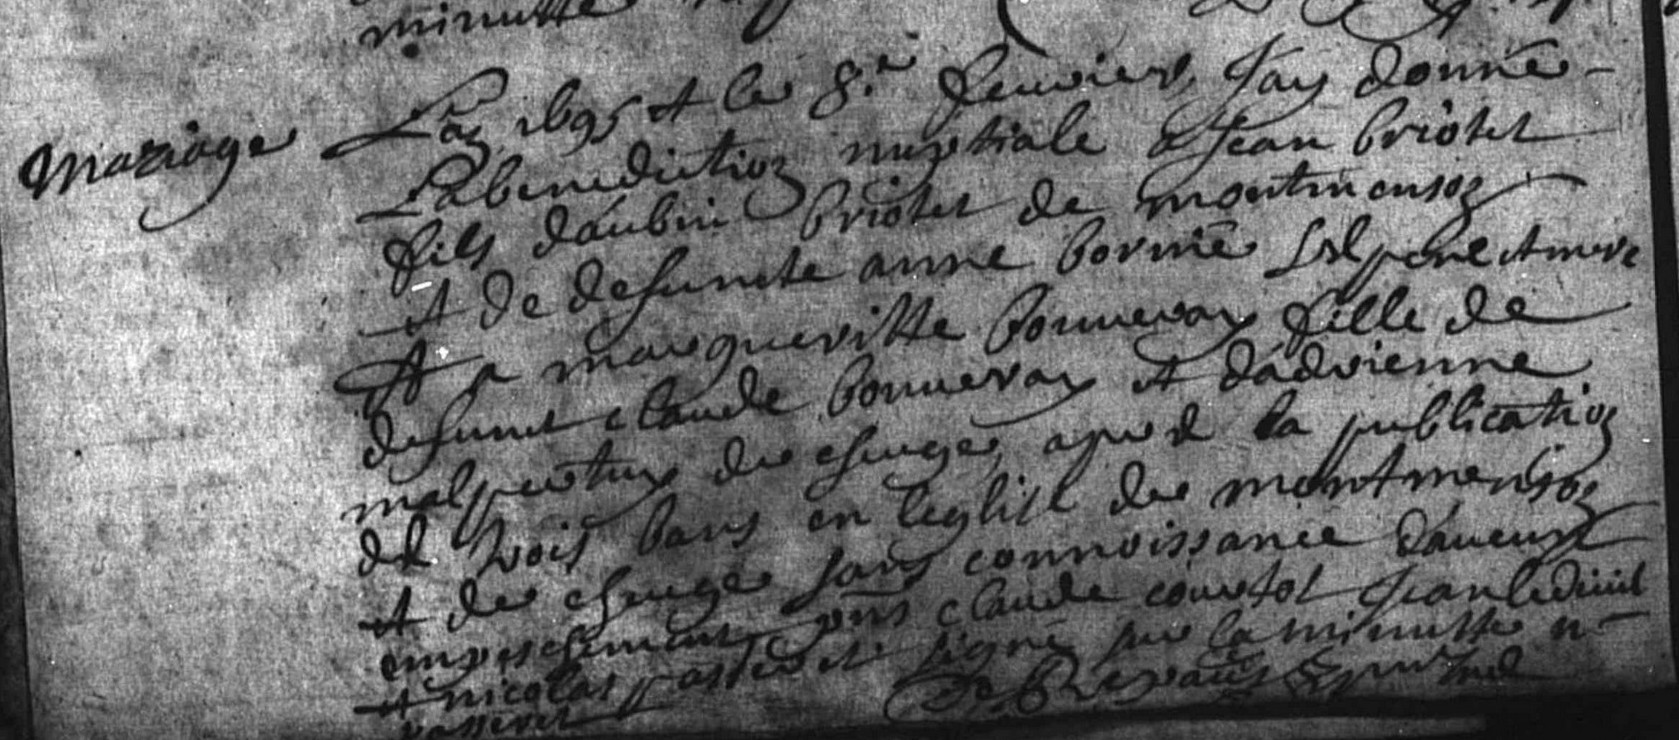 minutte
Mariage
Lan 1695 et le 8.e feuvier, Jay donné
La benediction nuptiale a Jean briotet
fils daubin briotet de montmenson
et de defuncte anne borniē ses pere et mere
Et a margueritte bonnevaux fille de
defunct claude bonnevaux et dadrienne
malpertuy de cheuge, apres la publication
de trois bans en leglise de montmenson
et de cheuge sans connoissance daucun
empeschement pnts claude courtot Jean
et nicolas signé sur la minutte